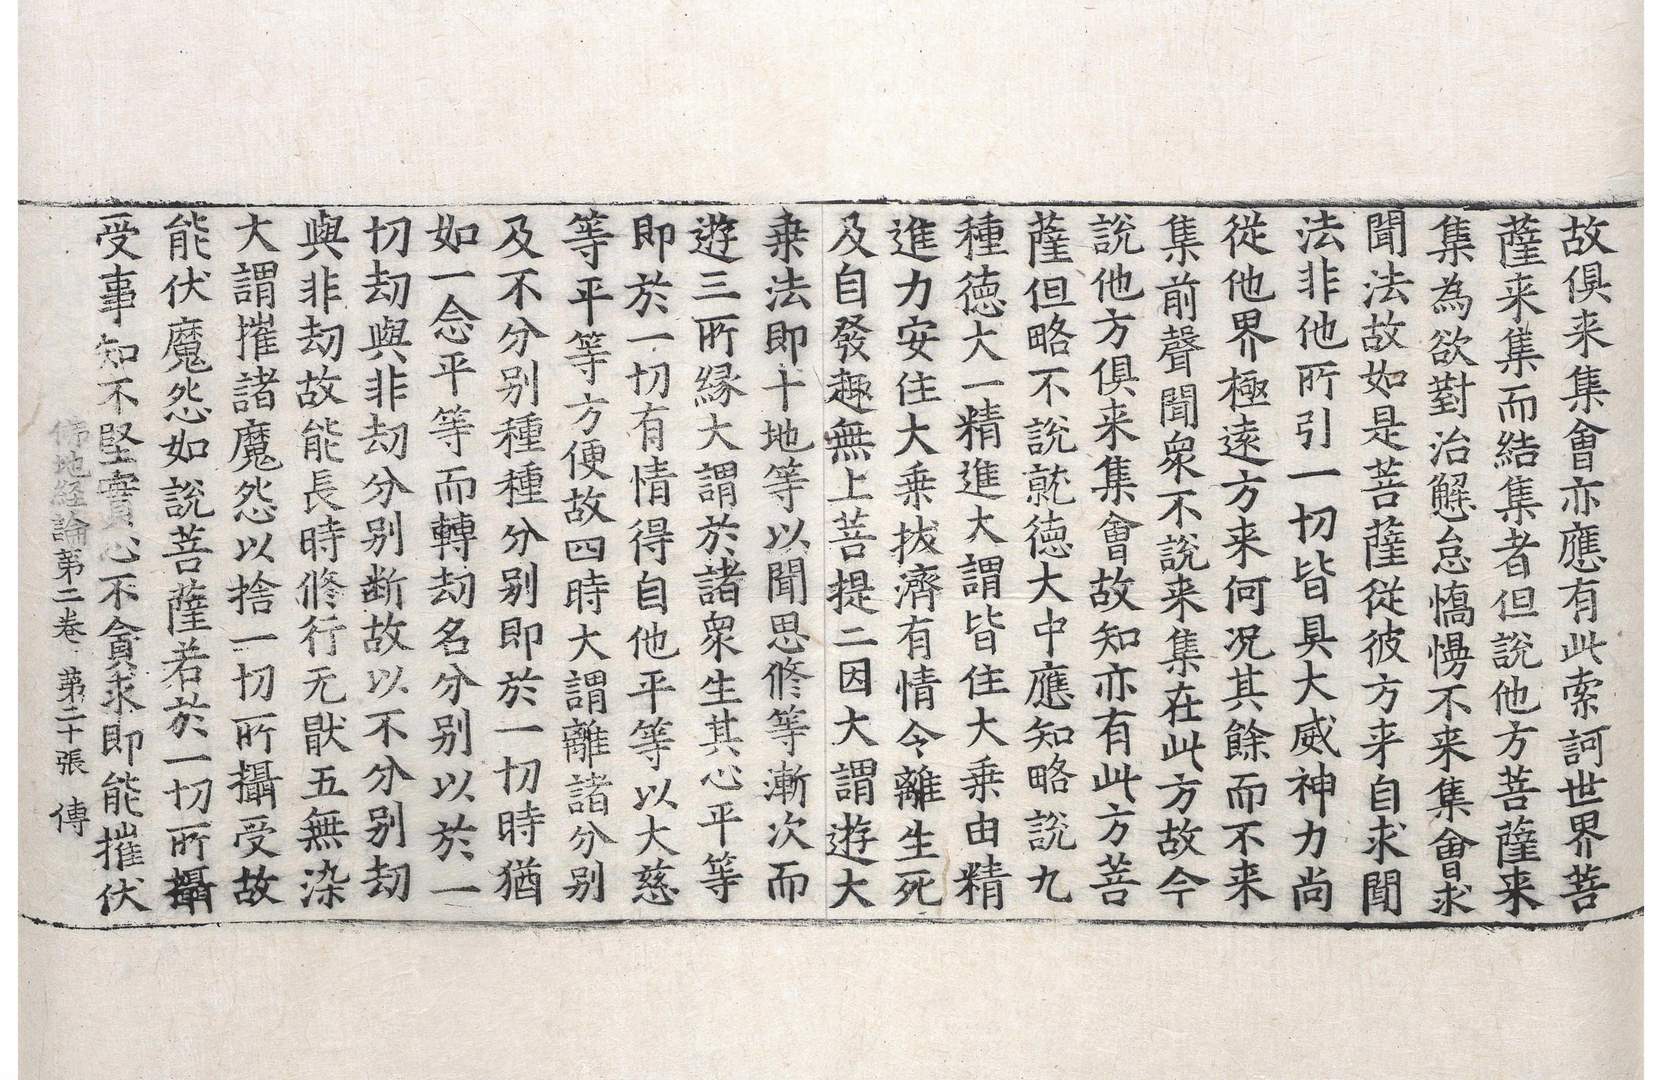 故俱来集會亦應有此索訶世界菩
薩来集而結集者但說他方菩薩来
集為欲對治懈怠憍慢不来集會求
聞法故如是菩薩從彼方来自求聞
法非他所引一切皆具大威神力尚
從他界極遠方来何况其餘而不来
集前聲聞衆不說来集在此方故今
說他方俱来集會故知亦有此方菩
薩但略不說就德大中應知略說九
種德大一精進大謂皆住大乗由精
進力安住大乗拔濟有情令離生死
及自發趣無上菩提二因大謂遊大
乗法即十地等以聞思修等漸次而
遊三所縁大謂於諸衆生其心平等
即於一切有情得自他平等以大慈
等平等方便故四時大謂離諸分别
及不分别種種分别即於一切時猶
如一念平等而轉劫名分别以於一
切劫與非劫分别断故以不分别劫
與非劫故能長時修行无猒五無染
大謂摧諸魔怨以捨一切所攝受故
能伏魔怨如說菩薩若於一切所攝
受事知不堅實心不貪求即能摧伏
佛地経論第二巻 第二十張 傳